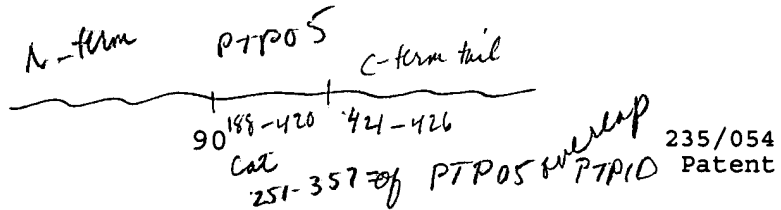 N-term PTP05 C-term tail
90 188-420 421-426
Cat
251-357 of PTP05 overlap PTP1D
235/054
Patent